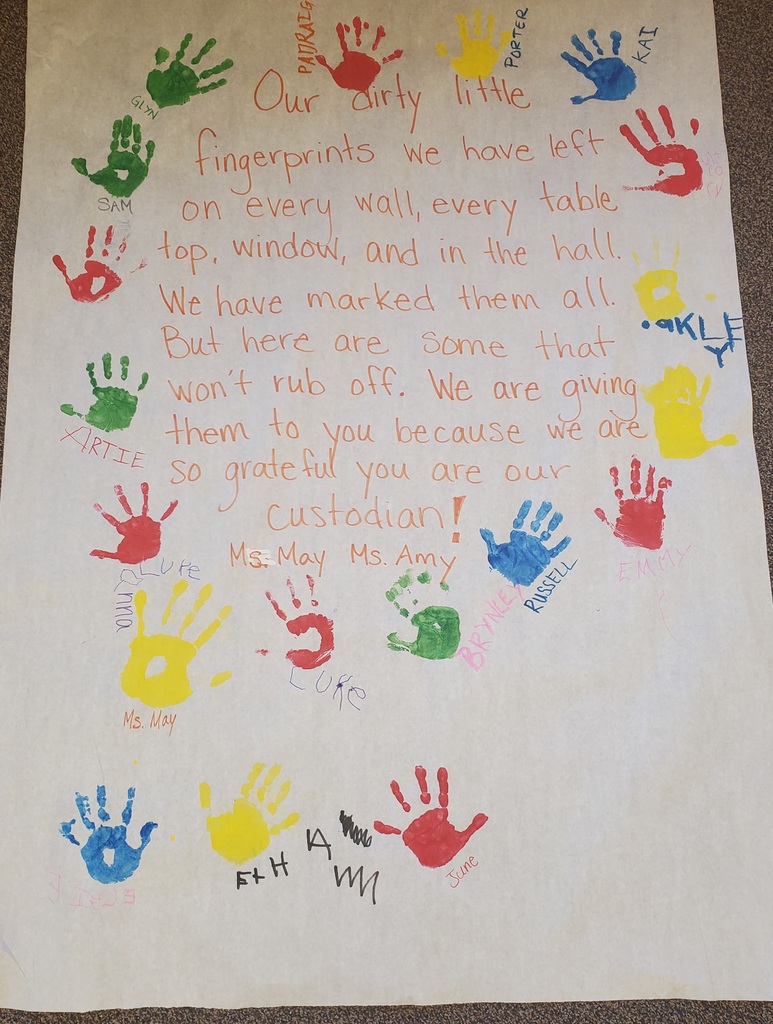 PADRAIG
PORTER
KAI
GLYN
Our dirty little
fingerprints we have left
on every wall, every table
SAM
top, window, and in the hall.
We have marked them all.
But here are some that
won't rub off. We are giving
them to you because we are
ARTIE
so grateful you are our
custodian!
Ms. May Ms. Amy
LUKE
Anna
RUSSELL
EMMY
BRYNLEY
LUKE
Ms. May
June